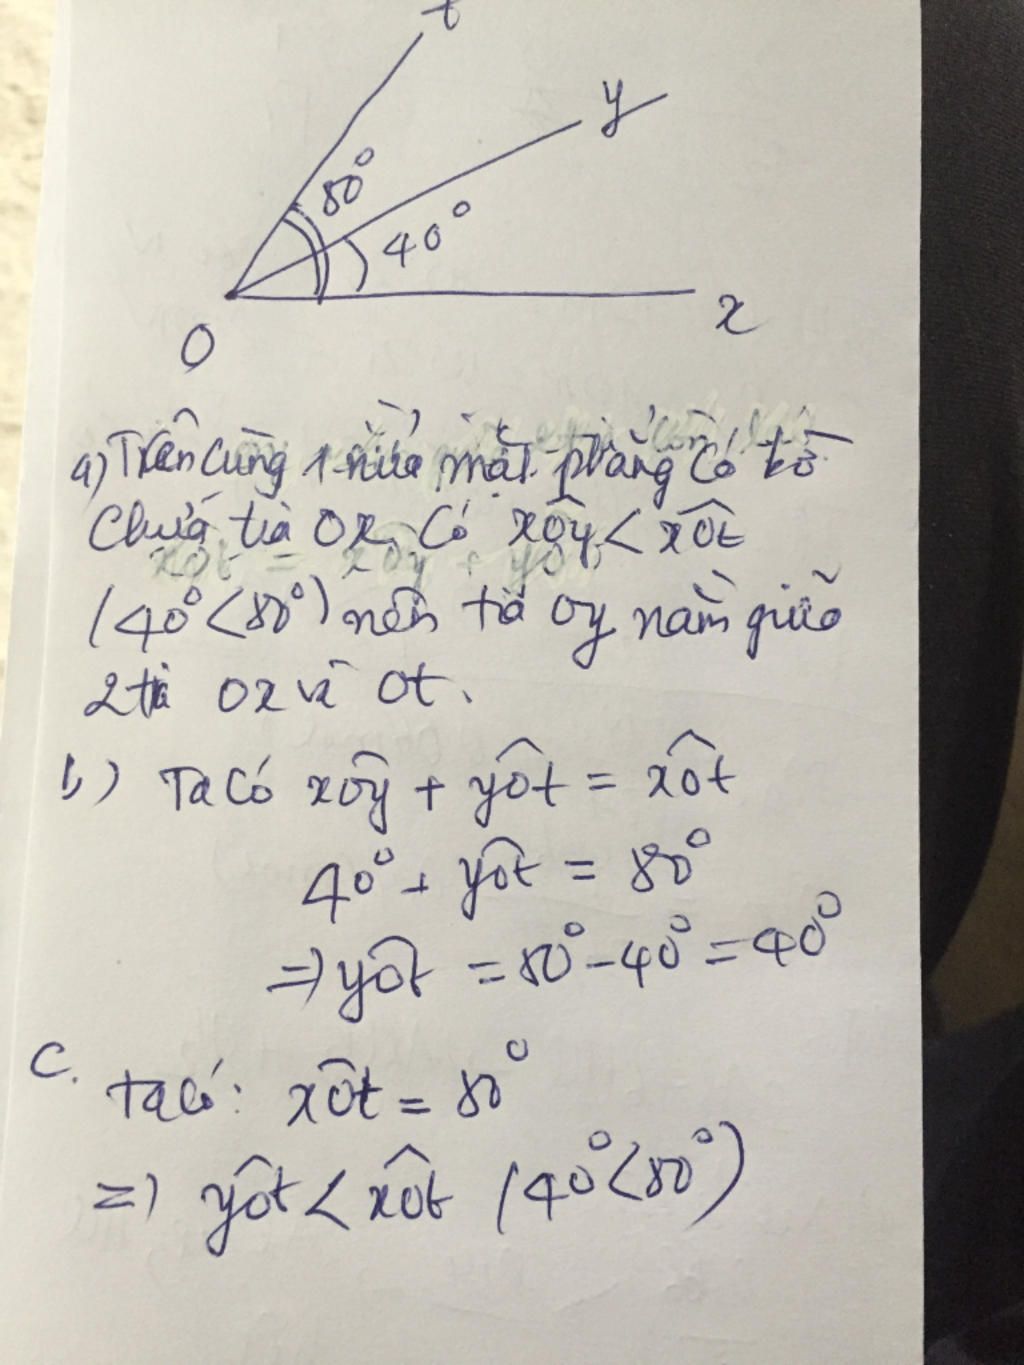 t
y
80°
40°
x
O
a) Trên cùng 1 nửa mặt phẳng có bờ
chứa tia Ox, có xÔy < xÔt
(40° < 80°) nên tia Oy nằm giữa
2 tia Ox và Ot.
b) Ta có xÔy + yÔt = xÔt
40° + yÔt = 80°
=> yÔt = 80° - 40° = 40°
c. Ta có: xÔt = 80°
=> yÔt < xÔt (40° < 80°)